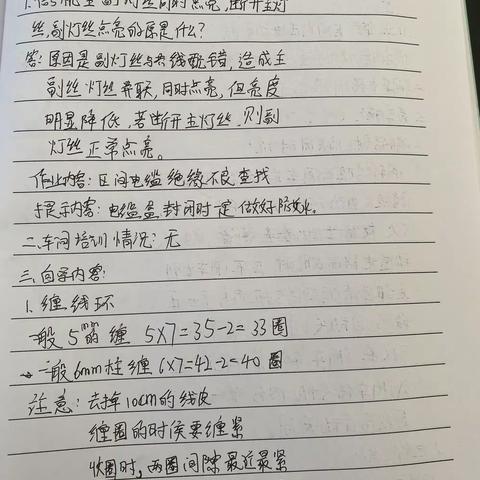 丝,副灯丝点亮的原是什么?
答:原因是副灯丝与共线配错,造成主
副丝灯丝并联,同时点亮,但亮度
明显降低,若断开主灯丝,则副
灯丝正常点亮。
作业内容:区间电缆绝缘不良查找
提示内容:电缆盒封闭时一定做好防水。
二.车间培训情况:无
三.自学内容:
1.缠线环
一般5mm的缠 5×7=35-2=33圈
一般6mm柱缠6×7=42-2=40圈
注意:去掉10cm的线皮
缠圈的时侯要缠紧
圈时,两圈间隙最近最紧